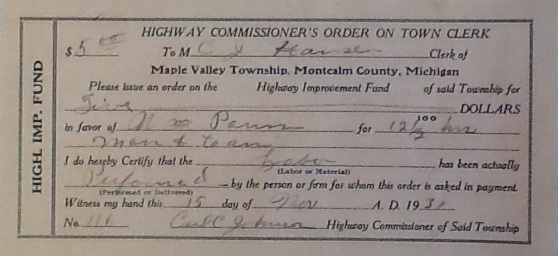 HIGHWAY COMMISSIONER'S ORDER ON TOWN CLERK
$ 5 00 To M C J Hansen Clerk of
Maple Valley Township, Montcalm County, Michigan
Please issue an order on the Highway Improvement Fund of said Township for
Five 00/100 DOLLARS
in favor of Wm for 12 1/2 hrs
Man & Team
I do hereby Certify that the Labor has been actually
(Labor or Material)
Performed by the person or firm for whom this order is asked in payment.
(Performed or Delivered)
Witness my hand this 15 day of Nov A. D. 193
No. 116 Carl C Johnson Highway Commissioner of Said Township
HIGH. IMP. FUND